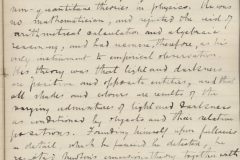 any quantitative theories in physics. He was
no mathematician, and rejected the aid of
arithmetical calculation and algebraic
reasoning, and had recourse, therefore, as his
only instrument to empirical observation.
His theory was that light and darkness
are positive and opposite entities, and that
all shades and colours are results of the
varying admixtures of light and darkness
as conditioned by objects and their relative
positions. Founding himself upon fallacies
in detail, which he fancied he detected, he
rejected Newton's emission theory, together with